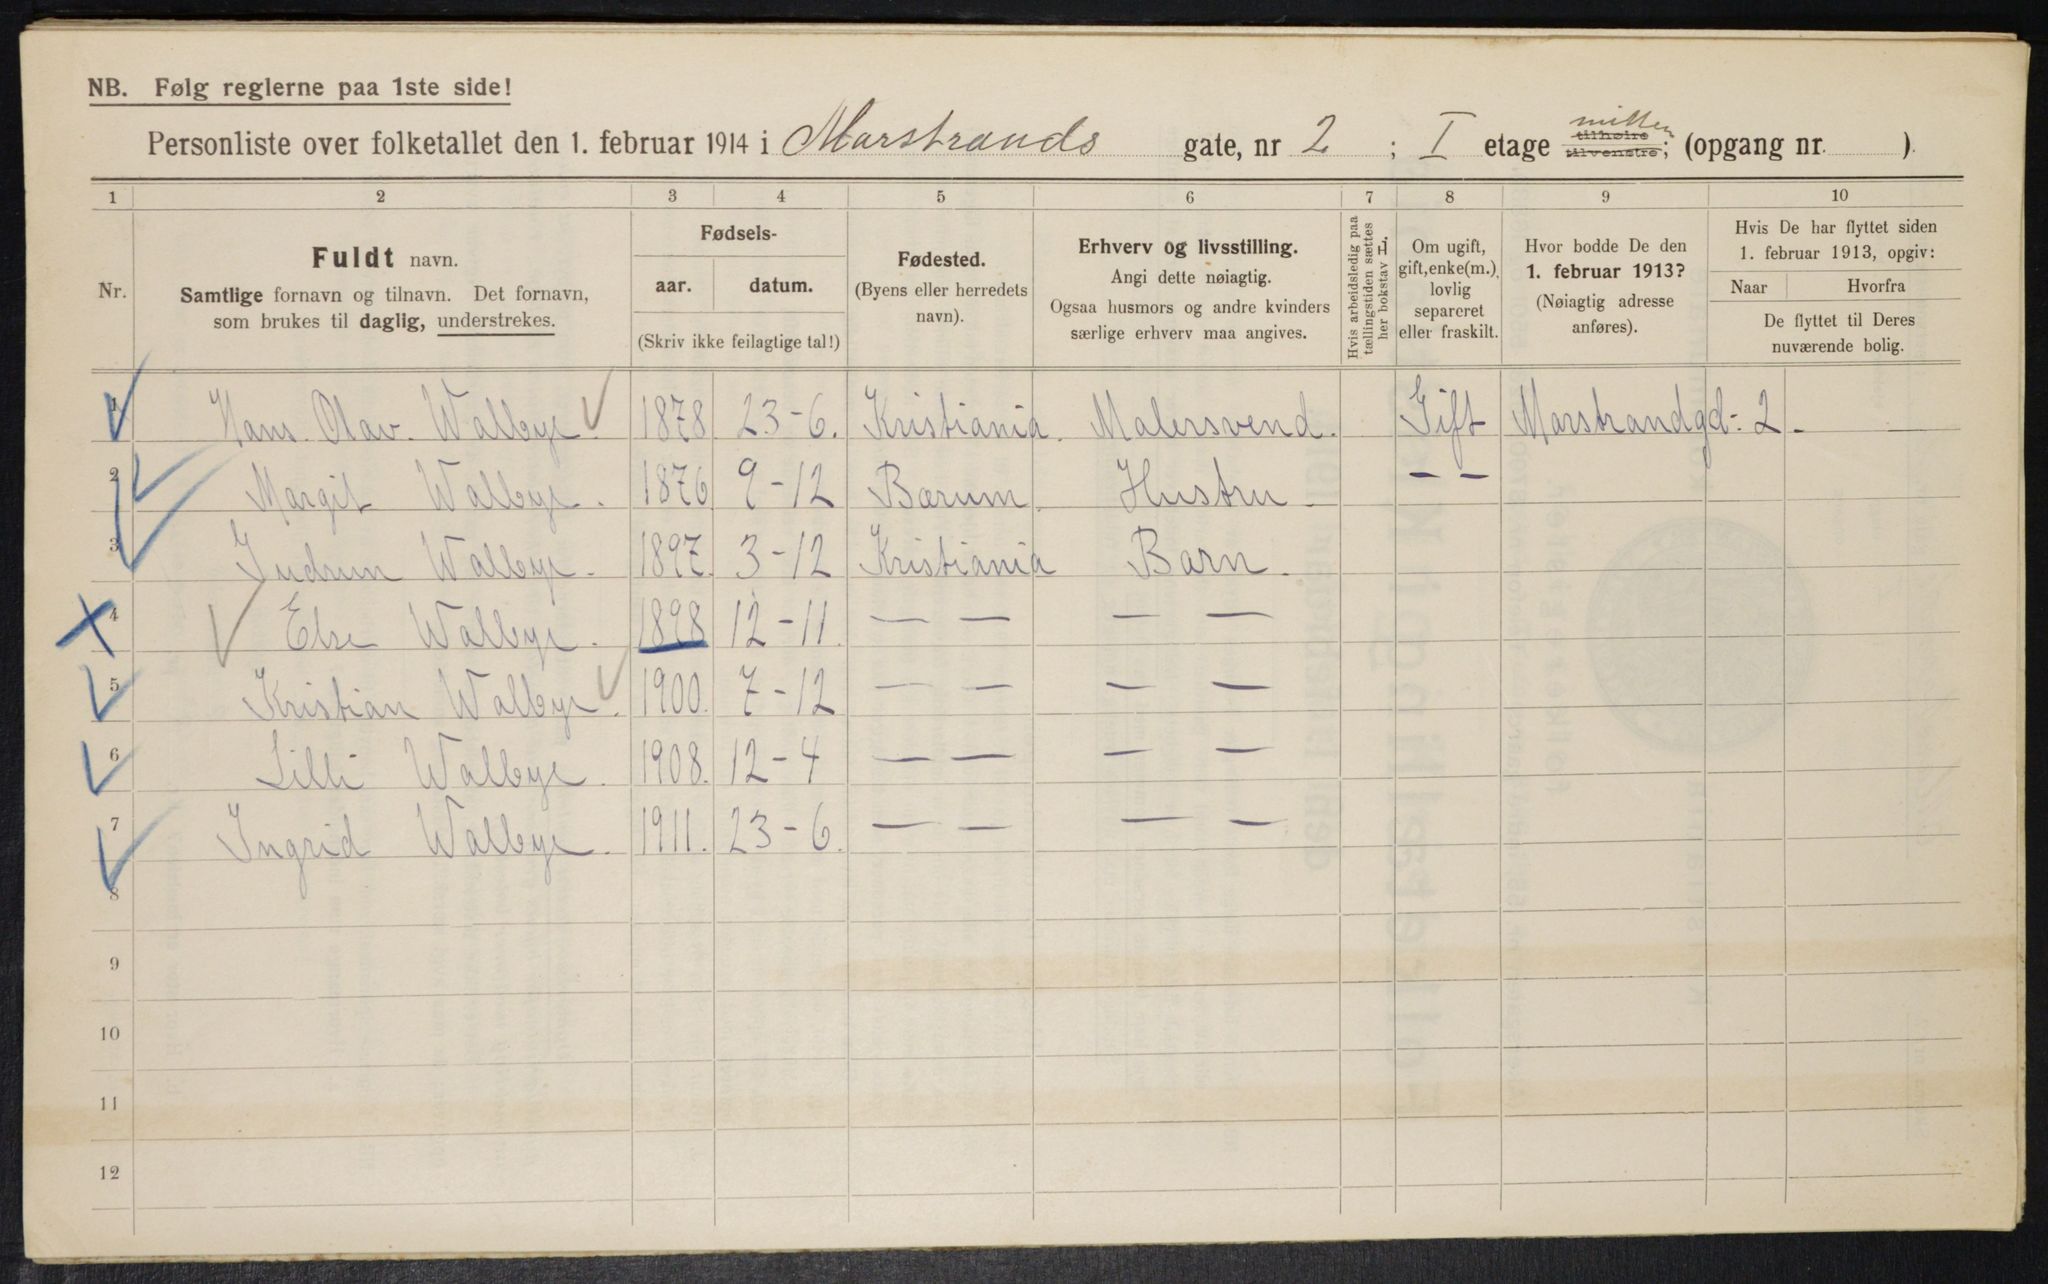 NB. Følg reglerne paa 1ste side!
Personliste over folketallet den 1. februar 1914 i Marstrands gate, nr 2 ; I etage midten tilhøire tilvenstre; (opgang nr. ).
1 2 3 4 5 6 7 8 9 10
Nr.
Fuldt navn.
Samtlige fornavn og tilnavn. Det fornavn,
som brukes til daglig, understrekes.
Fødsels-
aar. datum.
(Skriv ikke feilagtige tal!)
Fødested.
(Byens eller herredets
navn).
Erhverv og livsstilling.
Angi dette nøiagtig.
Ogsaa husmors og andre kvinders
særlige erhverv maa angives.
Hvis arbeidsledig paa
tællingstiden sættes
her bokstav L.
Om ugift,
gift, enke(m.),
lovlig
separeret
eller fraskilt.
Hvor bodde De den
1. februar 1913?
(Nøiagtig adresse
anføres).
Hvis De har flyttet siden
1. februar 1913, opgiv:
Naar Hvorfra
De flyttet til Deres
nuværende bolig.
1 Hans Olav. Walbye. 1878 23-6. Kristiania. Malersvend. Gift Marstrandgd. 2. —
2 Margit Walbye. 1876 9-12 Bærum. Hustru. — —
3 Gudrun Walbye. 1897. 3-12 Kristiania Barn.
4 Else Walbye. 1898 12-11. — — — —
5 Kristian Walbye. 1900. 7-12 — — — —
6 Lilli Walbye. 1908. 12-4 — — — —
7 Ingrid Walbye. 1911. 23-6. — — — —
8
9
10
11
12